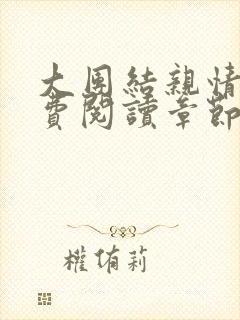 大團結親情
費閱讀章節
權侑莉